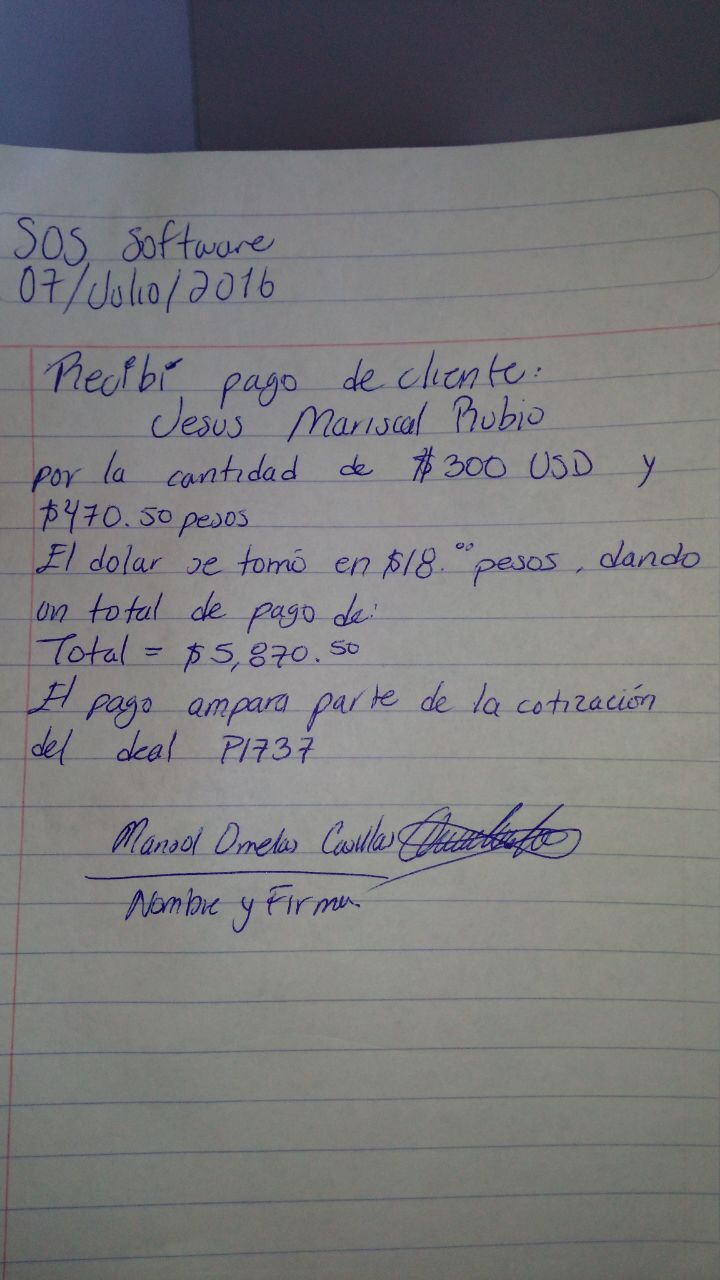 SOS Software
07/Julio/2016
Recibí pago de cliente:
Jesus Mariscal Rubio
por la cantidad de $300 USD y
$470.50 pesos
El dolar se tomó en $18.00 pesos, dando
un total de pago de:
Total = $5,870.50
El pago ampara parte de la cotización
del deal P1737
Manuel Ornelas
Nombre y Firma.